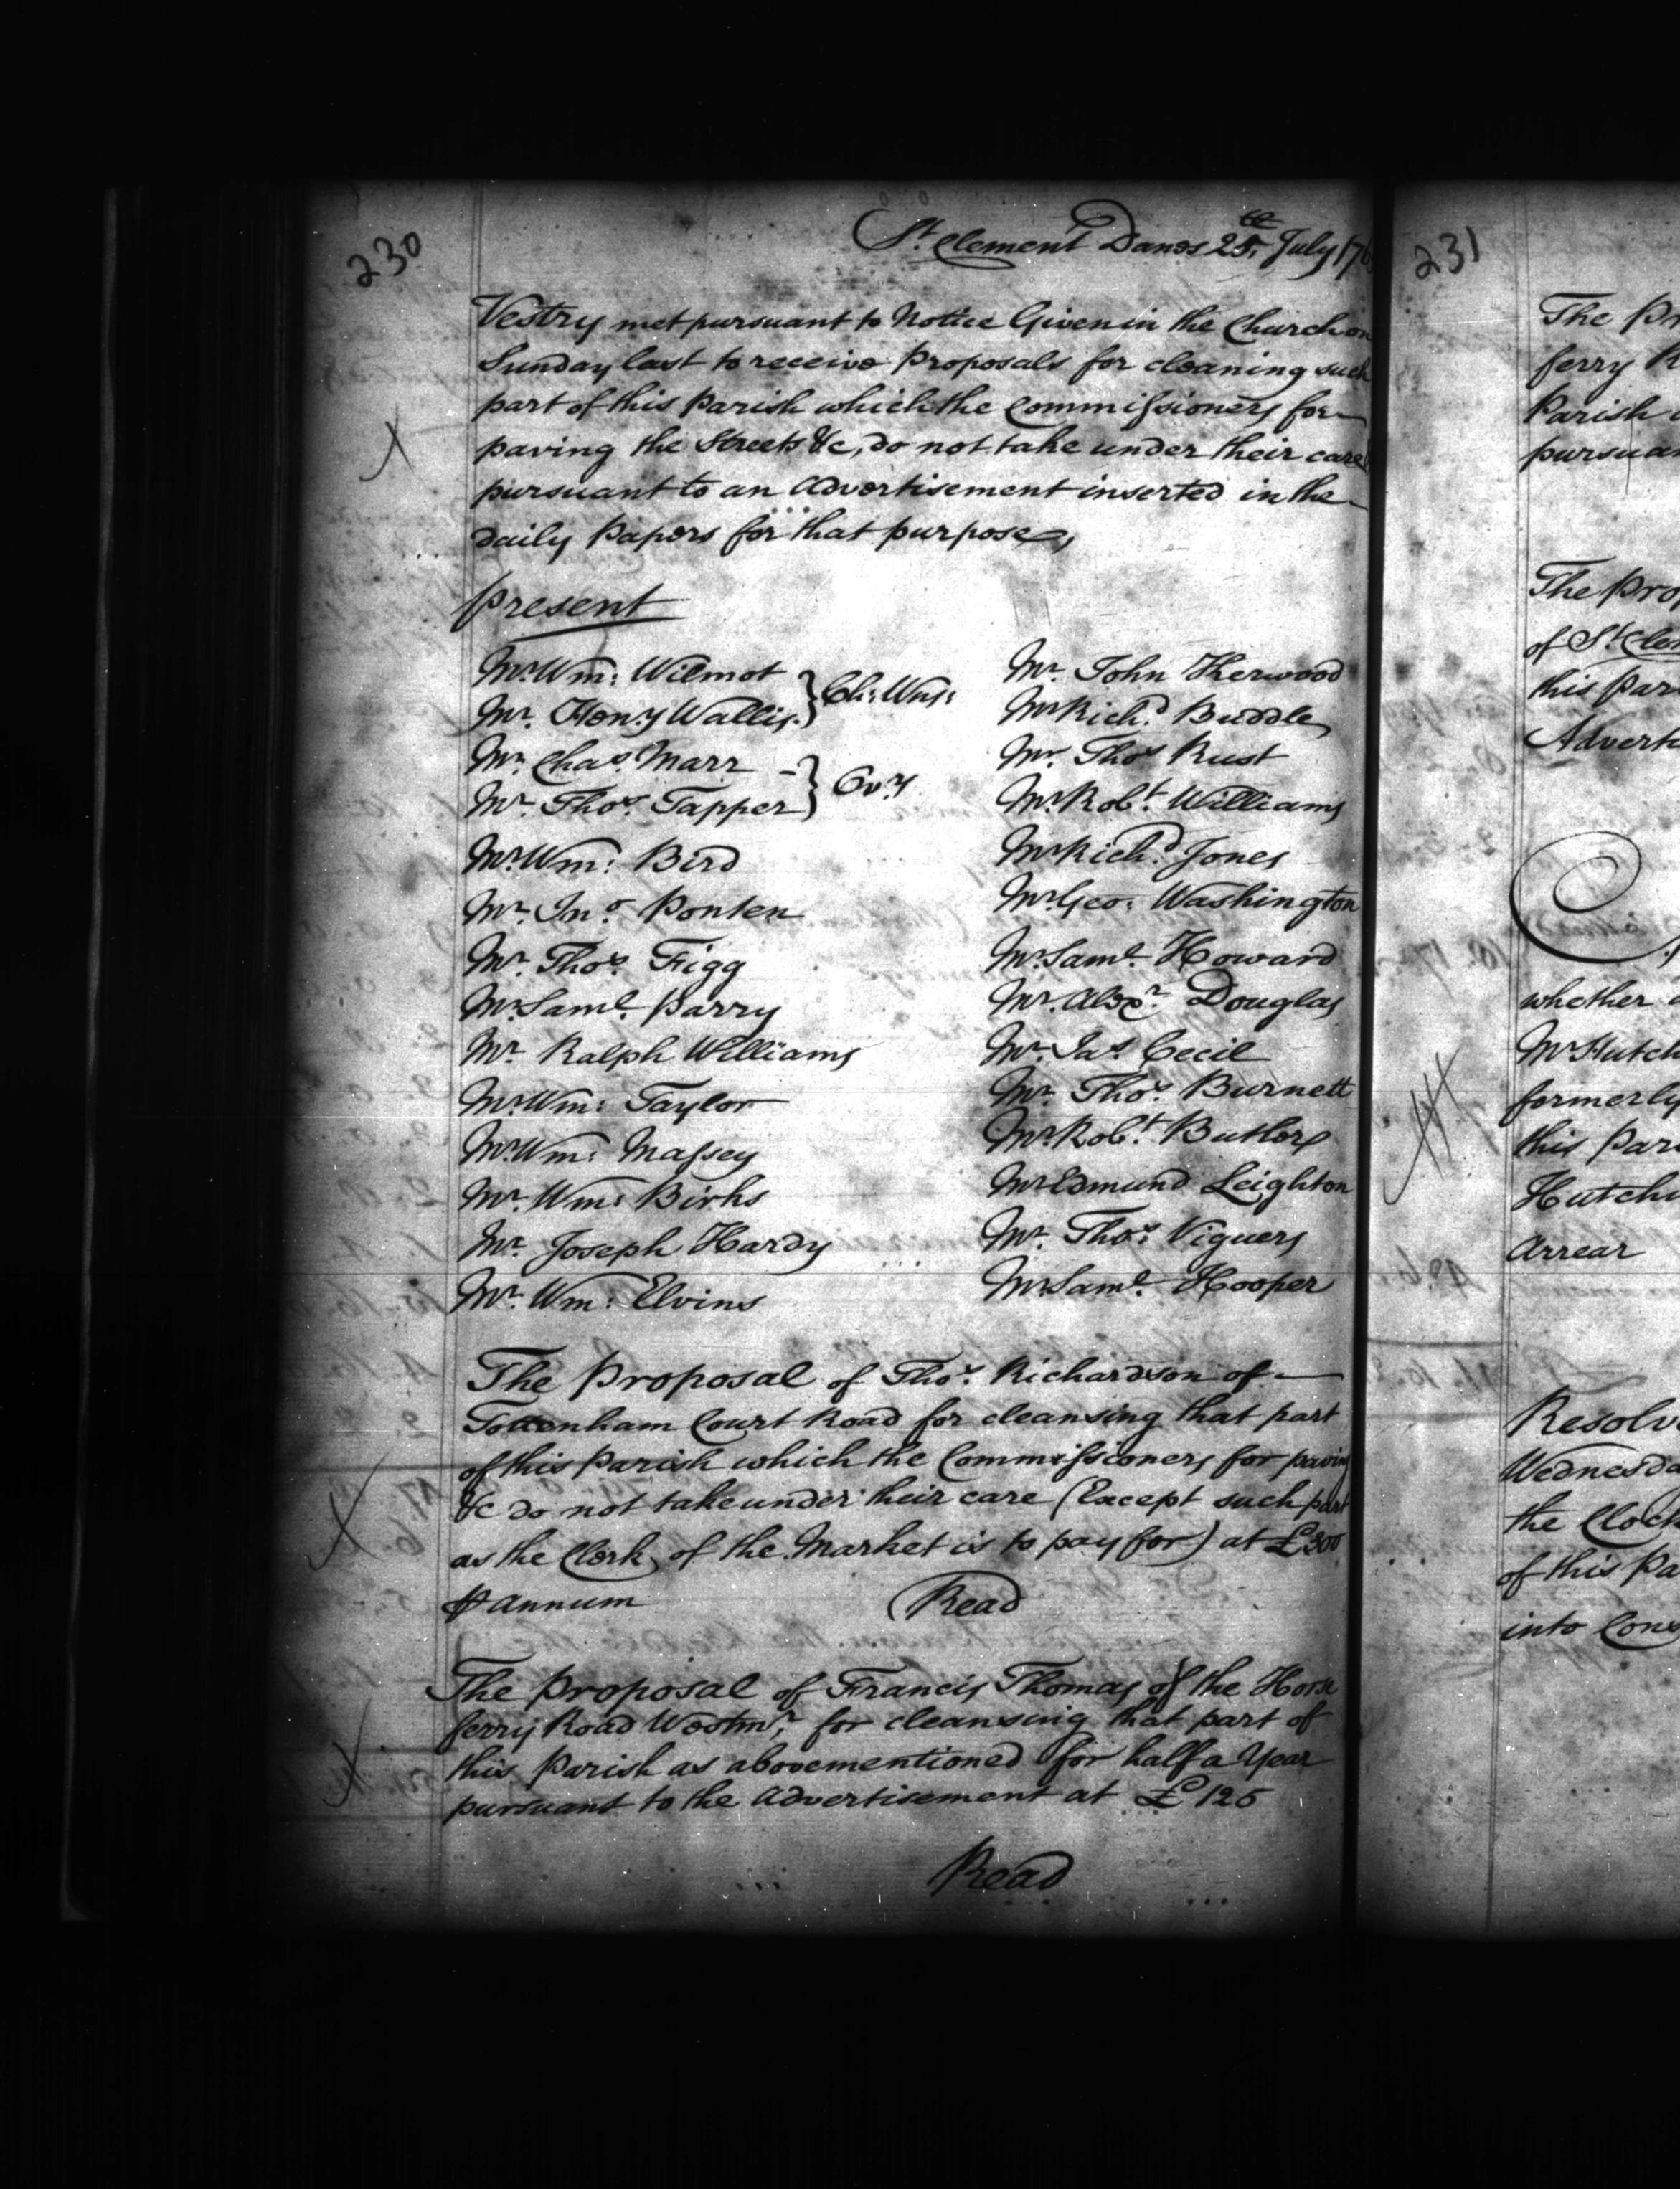 230
St. Clement Danes 25th July 176
Vestry met pursuant to Notice Given in the Church on
Sunday last to receive Proposals for cleaning such
part of this Parish which the Commissioners for
paving the Streets &c, do not take under their care
pursuant to an Advertisement inserted in the
daily Papers for that purpose,
Present
Mr. Wm: Wilmot
Mr. Henry Wallis } Ch: Wns:
Mr. Chas. Marr -
Mr. Thos. Tapper } Ovrs
Mr. Wm: Bird
Mr. Jno. Ponten
Mr. Thos. Figg
Mr. Saml. Parry
Mr. Ralph Williams
Mr. Wm: Taylor
Mr. Wm: Massey
Mr. Wm: Birks
Mr. Joseph Hardy
Mr. Wm: Elvins
Mr. John Sherwood
Mr. Richd. Buddle
Mr. Thos. Rust
Mr. Robt. Williams
Mr. Richd. Jones
Mr. Geo: Washington
Mr. Saml. Howard
Mr. Alexr. Douglas
Mr. Jas. Cecil
Mr. Thos. Burnett
Mr. Robt. Butler
Mr. Edmund Leighton
Mr. Thos. Viguers
Mr. Saml. Hooper
The Proposal of Thos. Richardson of
Tottenham Court Road for cleansing that part
of this Parish which the Commissioners for paving
&c do not take under their care (Except such part
as the Clerk of the Market is to pay for) at £300
⅌ Annum Read
The Proposal of Francis Thomas of the Horse
ferry Road Westmr. for cleansing that part of
this Parish as abovementioned for half a Year
pursuant to the Advertisement at £125
Read
231
The Pr
ferry R
Parish
pursuan
The Pro
of St. Cle
this Par
Advert
whether
Mr. Hutch
formerly
this Par
Hutchi
Arrear
Resolv
Wednesda
the Clock
of this Pa
into Cons